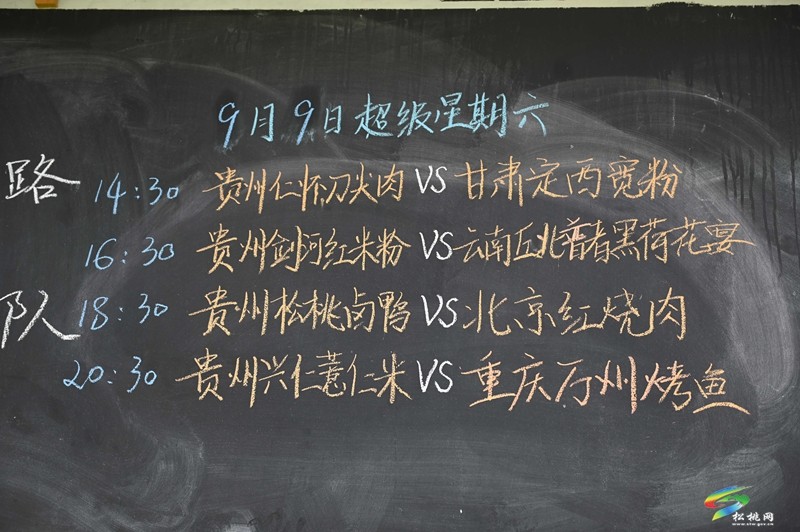 9月9日超级星期六
路 14:30 贵州仁怀刀尖肉 VS 甘肃定西宽粉
16:30 贵州剑河红米粉 VS 云南丘北普者黑荷花宴
队 18:30 贵州松桃卤鸭 VS 北京红烧肉
20:30 贵州兴仁薏仁米 VS 重庆万州烤鱼
松桃网
www.stw.gov.cn